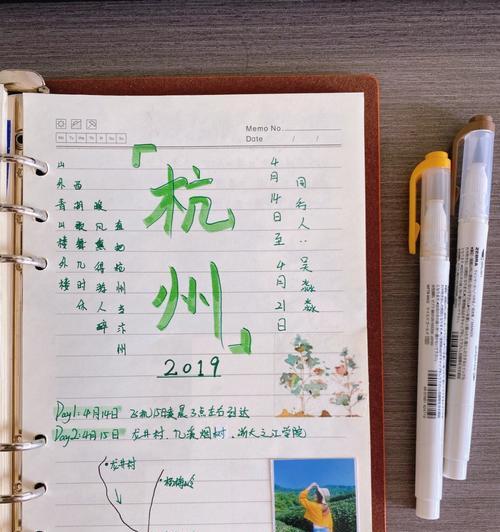 Memo No.
Mo Tu We Th Fr Sa Su
Date / /
「杭州」
山外青山楼外楼
西湖歌舞几时休
暖风熏得游人醉
直把杭州当汴州
4月14日至4月21日
同行人:吴淼淼
2019
Day1:4月14日 飞机15日凌晨3点左右到达
Day2:4月15日 龙井村、九溪烟树、浙大之江学院
龙井村
杨梅岭
ZEBRA